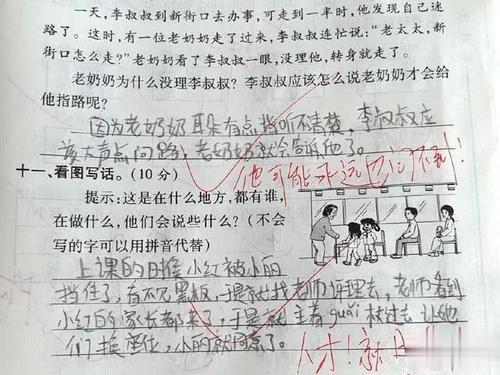 一天,李叔叔到新街口去办事,可走到一半时,他发现自己迷
路了。这时,有一位老奶奶走了过来,李叔叔连忙说:“老太太,新
街口怎么走?”老奶奶看了李叔叔一眼,没理他,转身就走了。
老奶奶为什么没理李叔叔?李叔叔应该怎么说老奶奶才会给
他指路呢?
因为老奶奶耳朵有点挡听不清楚,李叔叔应
该大声点问路,老奶奶就会告诉他了。
他可能永远也问不到!
十一、看图写话。(10分)
提示:这是在什么地方,都有谁,
在做什么,他们会说些什么?(不会
写的字可以用拼音代替)
上课的时候小红被小丽
挡住了,看不见黑板,于是就找老师评理去,老师看到
小红的家长都来了,于是就主着guǎi杖过去让他
们换座位,小丽就同意了。
人才!就